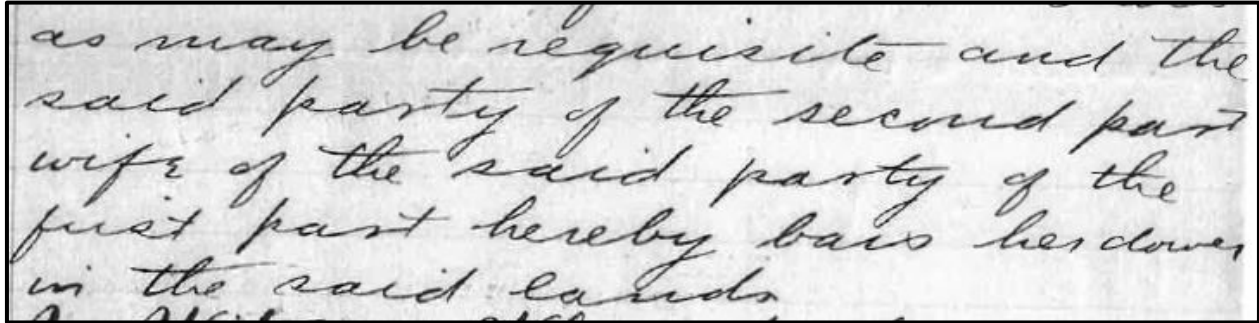 as may be requisite and the
said party of the second part
wife of the said party of the
first part hereby bars her dower
in the said lands